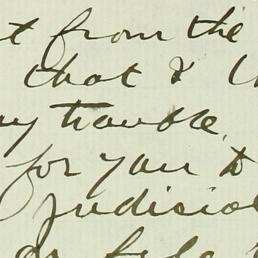 t from the
that I
ny trouble,
for you to
judicial
or